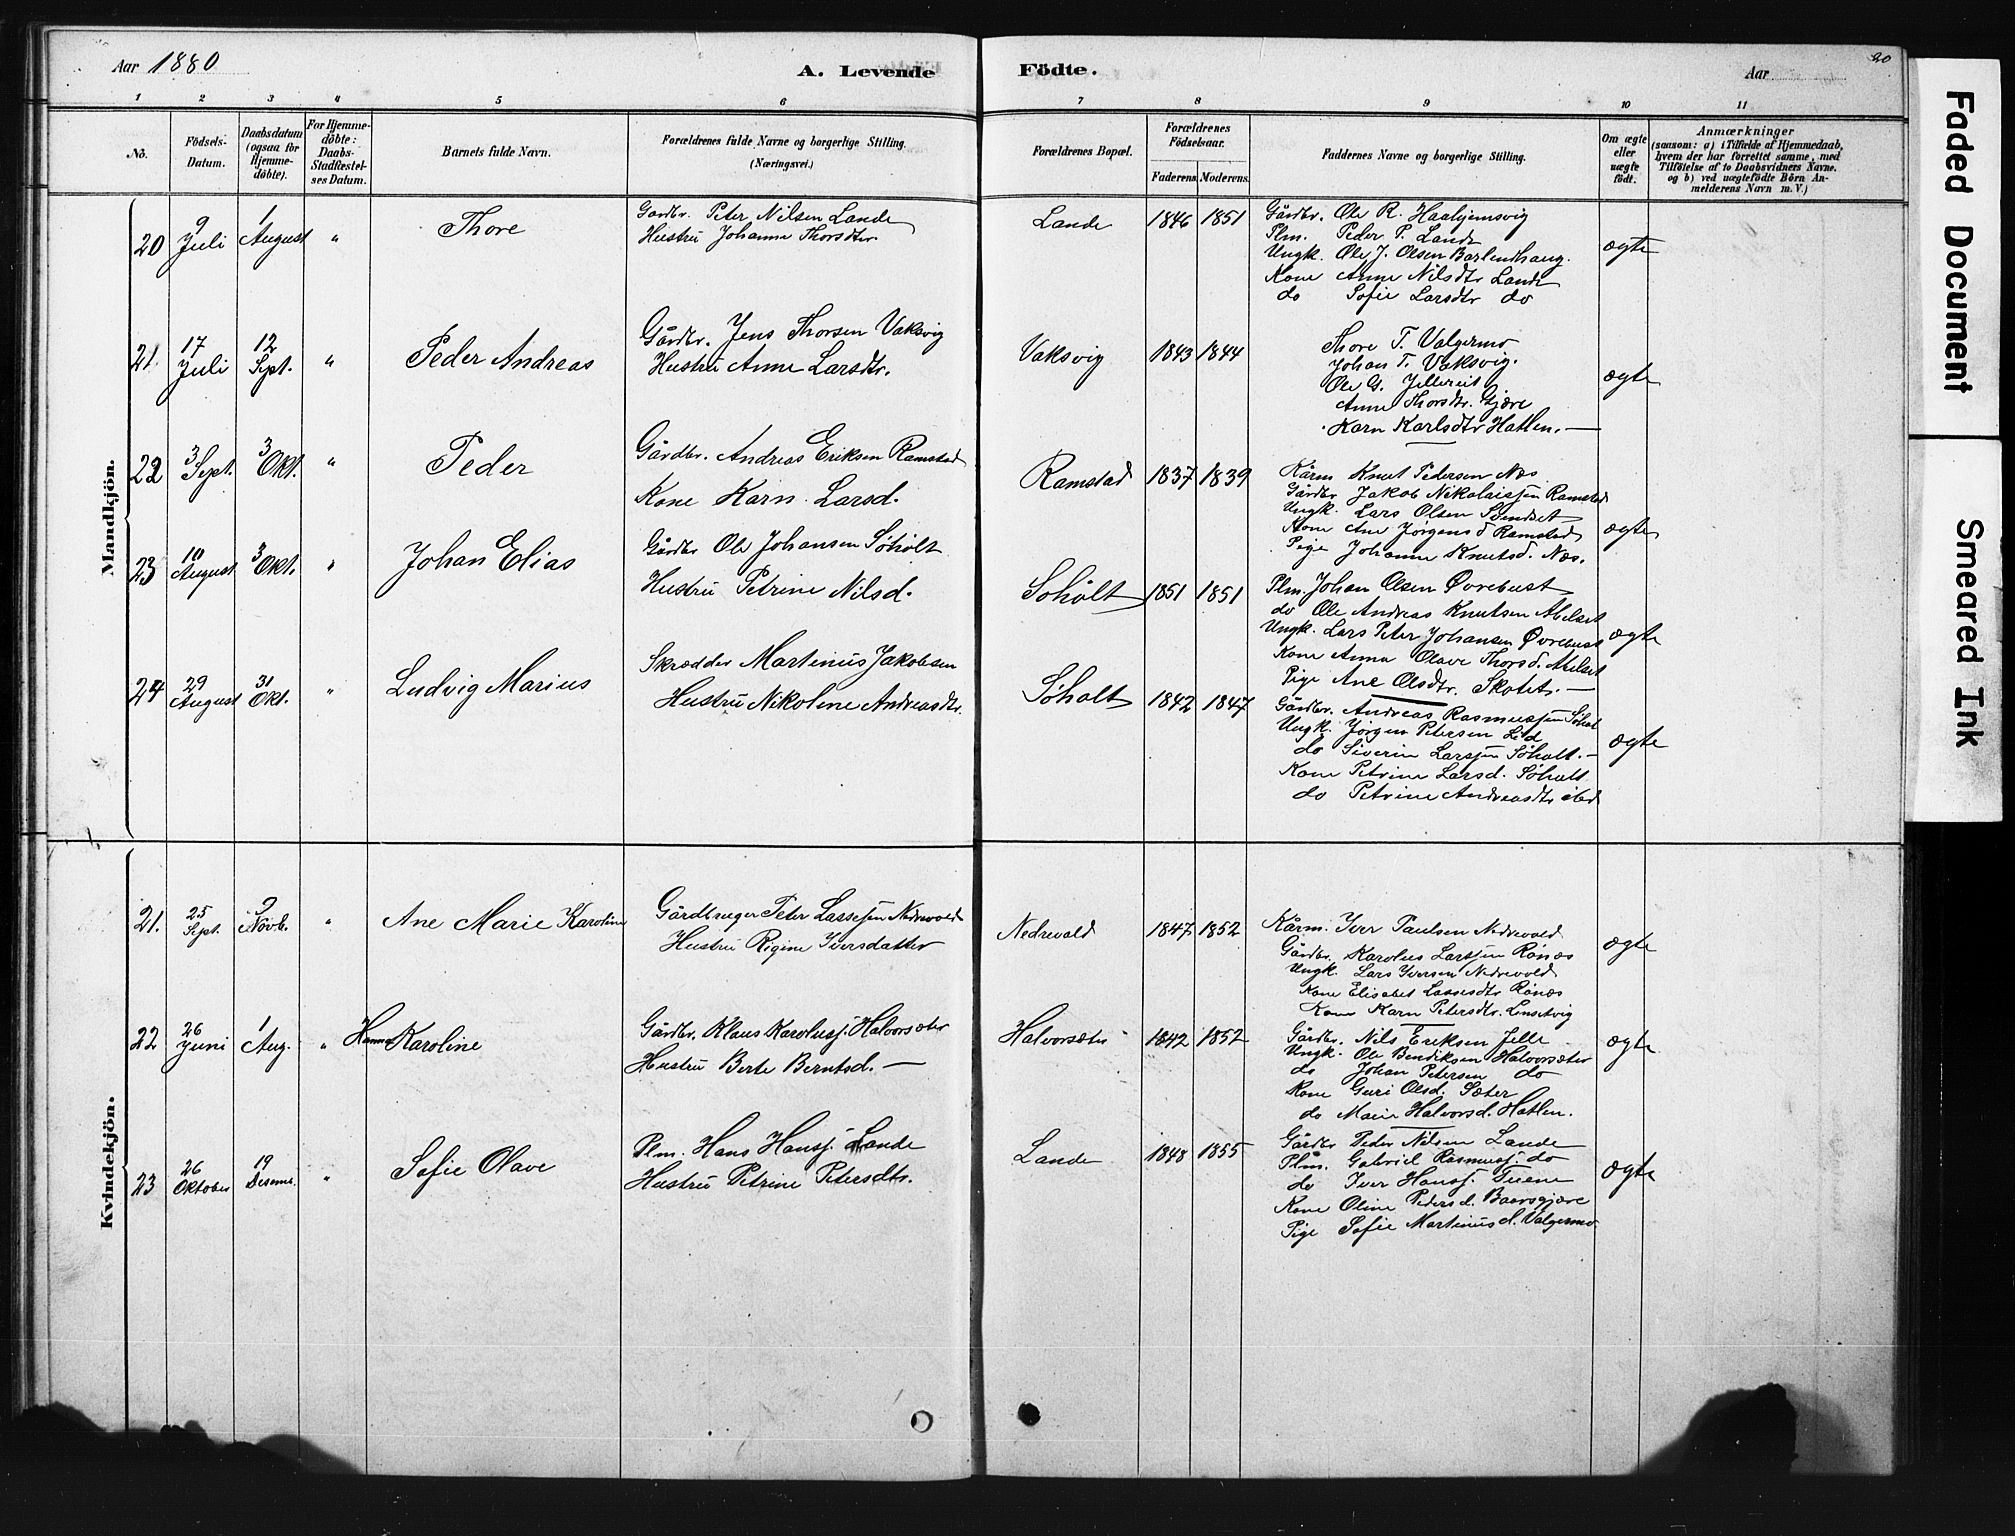 Aar 1880
A. Levende Födte.
Aar
20
1 2 3 4 5 6 7 8 9 10 11
No.
Födsels-Datum.
Daabsdatum (ogsaa for Hjemme-döbte).
For Hjemme-döbte: Daabs-Stadfæstel-ses Datum.
Barnets fulde Navn.
Forældrenes fulde Navne og borgerlige Stilling.
(Næringsvei.)
Forældrenes Bopæl.
Forældrenes Födselsaar.
Faderens Moderens.
Faddernes Navne og borgerlige Stilling.
Om ægte eller uægte födt.
Anmærkninger
(saasom: a) i Tilfælde af Hjemmedaab,
hvem der har forrettet samme, med
Tilföielse af to Daabsvidners Navne.
og b) ved uægtefödte Börn An-
melderens Navn m. V.)
Mandkjön.
20 9 Juli 1 August " Thore
Gardbr. Peter Nilsen Lande
Hustru Johanne Thorsdtr.
Lande 1846 1851
Gårdbr. Ole R. Haahjemsvig
Plm. Peder P. Lande
Ungk. Ole J. Olsen Barlendhaug.
Kone Anne Nilsdtr Lande
do Sofie Larsdtr do
ægte
21. 17 Juli 12 Sept. " Peder Andreas
Gårdbr. Jens Thorsen Vaksvig
Hustru Anne Larsdtr.
Vaksvig 1843 1844
Thore T. Valgermo
Johan T. Vaksvig.
Ole G. Jellereit
Anne Thorsdtr. Gjære
Karn Karlsdtr Hatlen. —
ægte
22 3 Sept. 3 Okt. " Peder
Gårdbr. Andreas Eriksen Ramstad
Kone Karn Larsd.
Ramstad 1837 1839
Kårm Knut Pedersen Næs
Gårdbr Jakob Nikolaissen Ramstad
Ungk. Lars Olsen
Kone Ane Jørgensd Ramstad
Pige Johanne Knutsd. Næs.
ægte
23 10 August 3 Okt. " Johan Elias
Gårdbr Ole Johansen Søholt
Hustru Petrine Nilsd.
Søholt 1851 1851
Plm. Johan Olsen Øvrebust
do Ole Andreas Knutsen Abelset
Ungk. Lars Peter Johansen Øvrebust
Kone Anna Olave Thorsd. Abelset
Pige Ane Olsdtr. Skotet. —
ægte
24 29 August 31 Okt. " Ludvig Marius
Skrædder Martinus Jakobsen
Hustru Nikoline Andreasdtr.
Søholt 1842 1847
Gårdbr. Andreas Rasmussen Søholt
Ungk. Jørgen Petersen Lid
do Siverin Larssen Søholt. —
Kone Petrine Larsd. Søholt
do Petrine Andreasdtr ibid
ægte
Kvindekjön.
21. 25 Sept. 2 Novb. " Ane Marie Karoline
Gårdbruger Peter Lassesen Nedrevold
Hustru Rigine Iversdatter
Nedrevold 1847 1852
Kårm. Iver Paulsen Nedrevold
Gårdbr. Karolus Larssen Rønæs
Ungk. Lars Iversen Nedrevold
Kone Elisabet Lassesdtr Rønæs
Kone Karn Petersdtr. Linsetvig
ægte
22 26 Juni 1 Aug. " Hanna Karoline
Gårdbr. Klaus Karolusj. Halvorsæter
Hustru Berte Berntsd. —
Halvorsæter 1842 1852
Gårdbr. Nils Eriksen Jelle
Ungk. Ole Bendiksen Halvorsæter
do Johan Petersen do
Kone Guri Olsd. Sæter
do Marie Halvorsd. Hatlen.
ægte
23 26 Oktober 19 Desemb. " Sofie Olave
Plm. Hans Hansj. Lande
Hustru Petrine Petersdtr.
Lande 1848 1855
Gårdbr Peder Nilsen Lande
Plm. Gabriel Rasmusj. do
do Iver Hansj. Tuene
Kone Oline Pedersd. Baarsgjære
Pige Sofie Martinusd. Valgermo
ægte
Faded Document
Smeared Ink